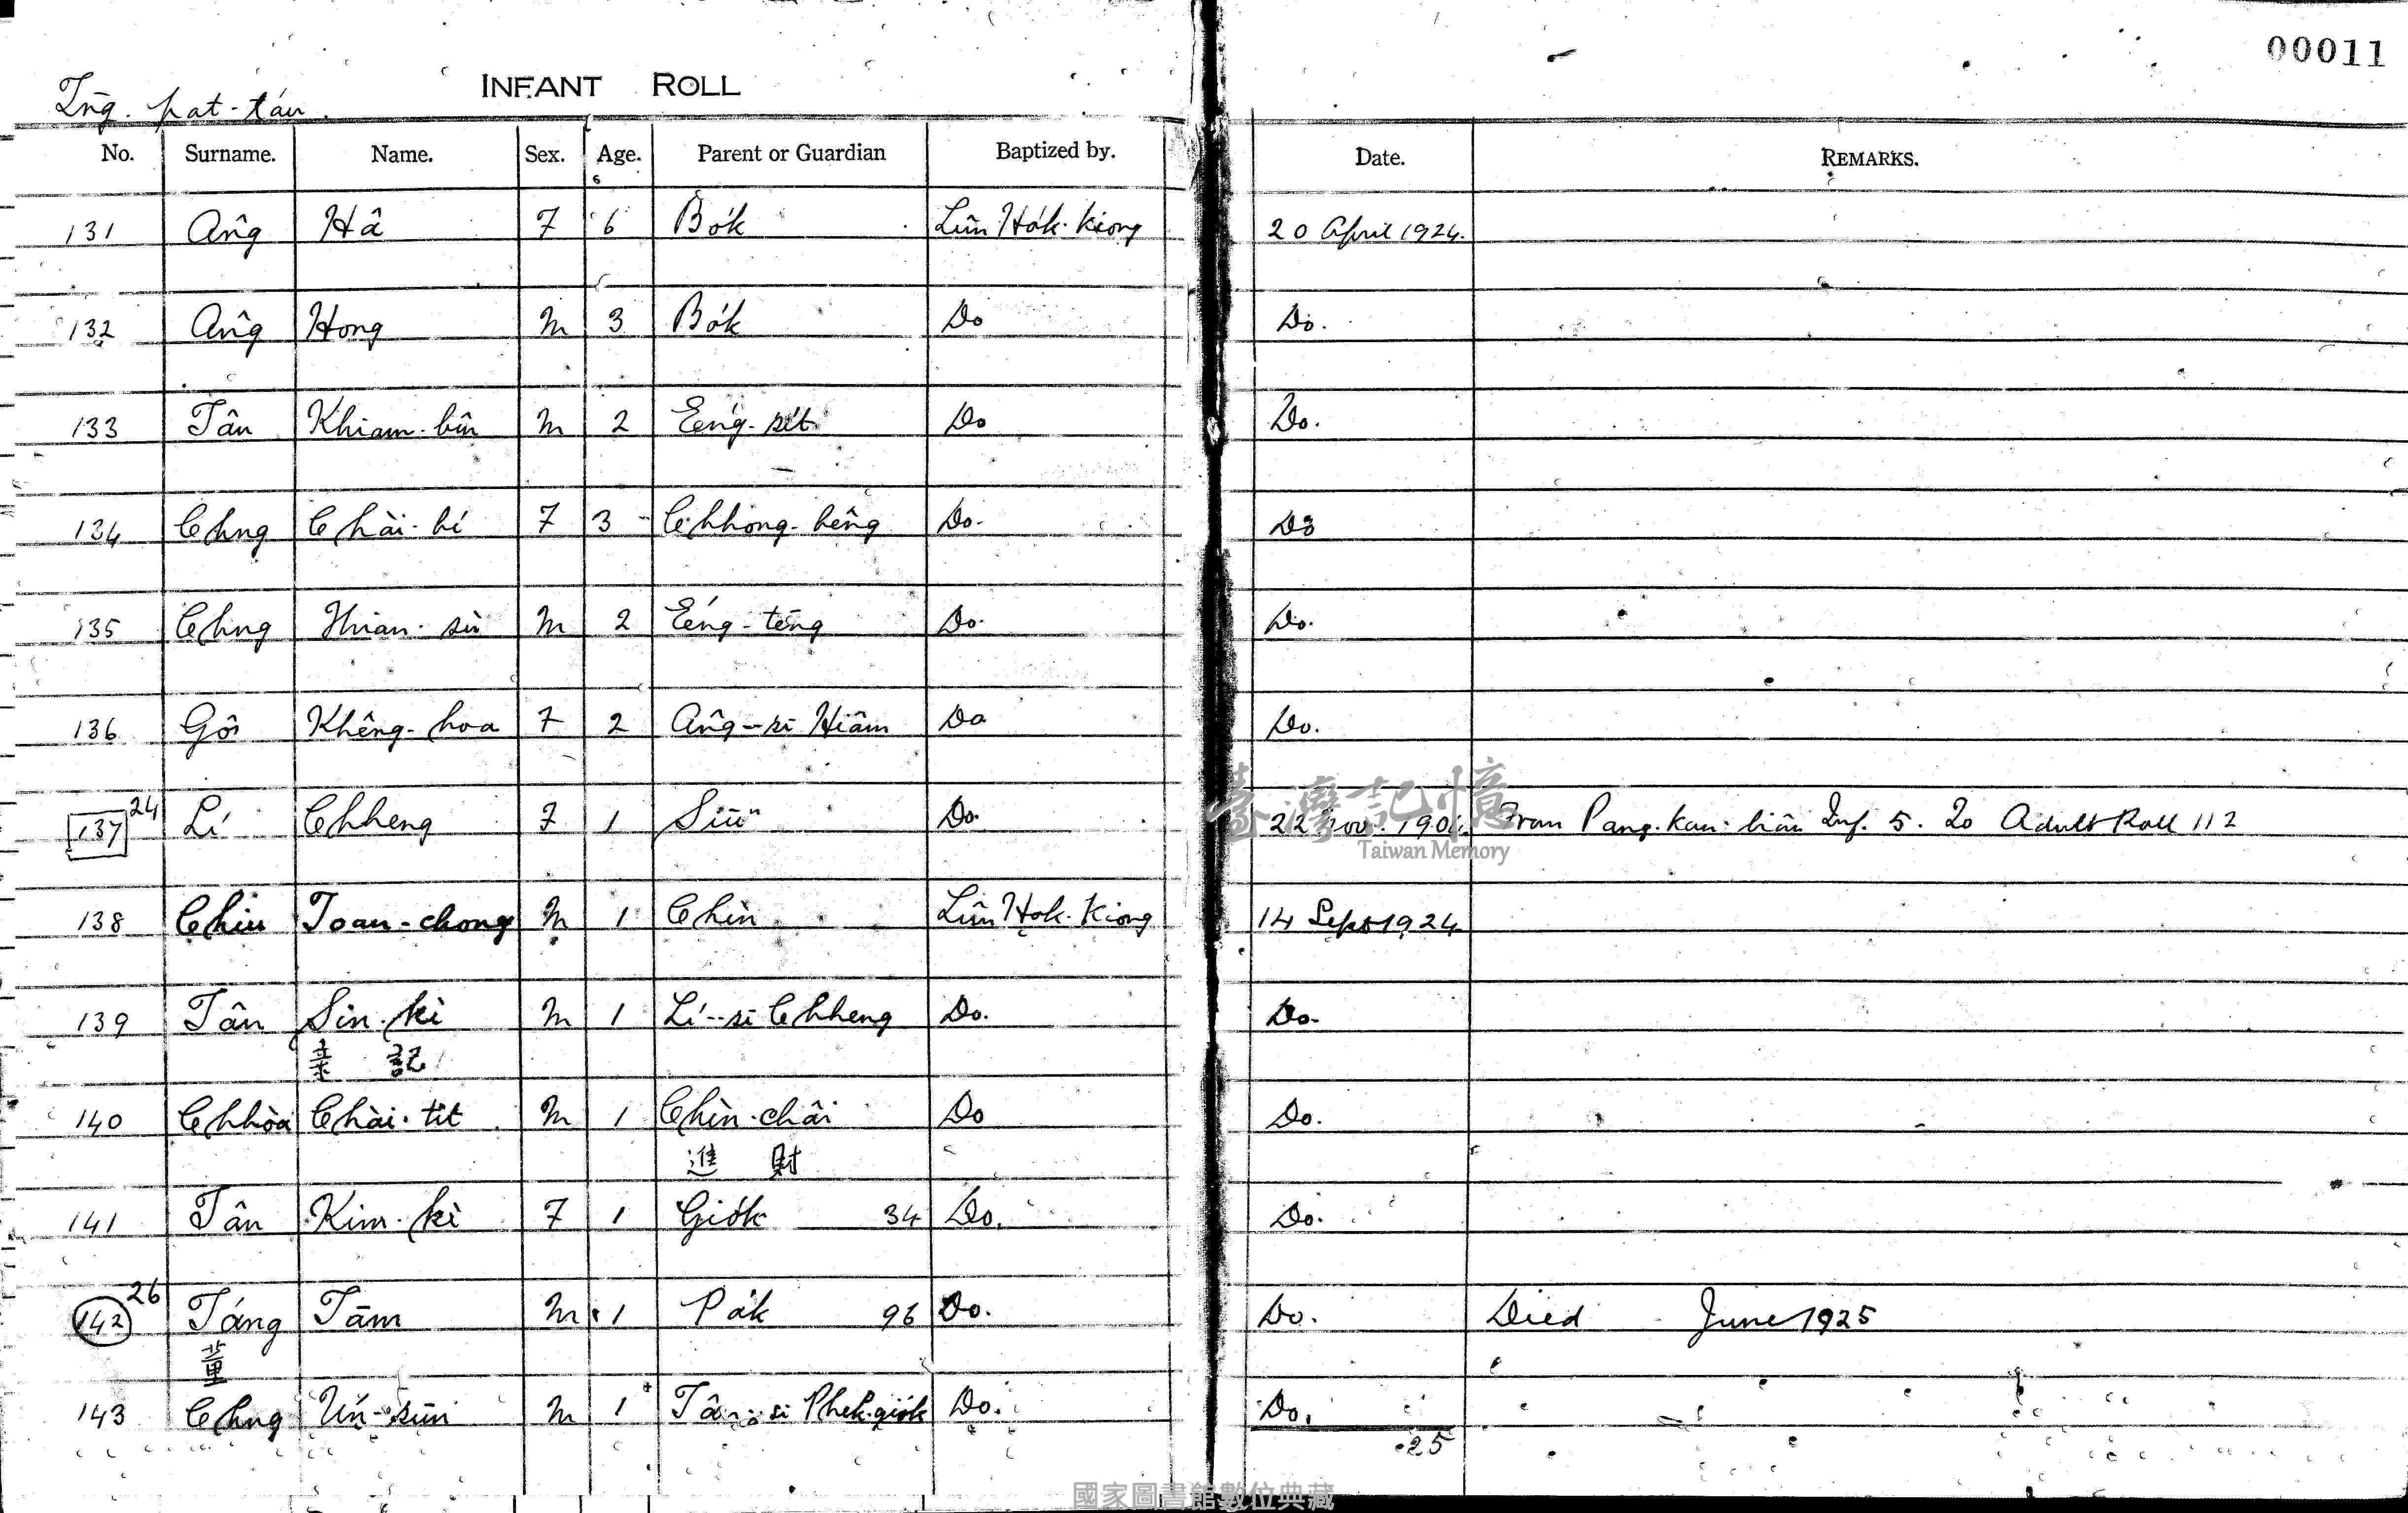 00011
INFANT ROLL
Tn̄g-pat-táu.
No. Surname. Name. Sex. Age. Parent or Guardian Baptized by. Date. REMARKS.
131 Âng Hâ F 6 Bo̍k Lîm Ho̍k-kiong 20 April 1924.
132 Âng Hong M 3 Bo̍k Do Do.
133 Tân Khiam-bîn M 2 Éng-sit Do Do.
134 Chng Chài-bí F 3 Chhong-bêng Do. Do
135 Chng Hian-sù M 2 Éng-têng Do. Do.
136 Gô͘ Khêng-hoa F 2 Âng-sī Hiâm Do Do.
137 24 Lí Chheng F 1 Siūⁿ Do. 22 Nov. 1904 From Pang-kau-liâu Inf. 5. To Adult Roll 112
138 Chiu Toan-chong M 1 Chìn Lîm Ho̍k-kiong 14 Sept 1924
139 Tân Sin-kì M 1 Lí-sī Chheng Do. Do.
亲 記
140 Chhòa Chài-tit M 1 Chìn-châi Do Do.
進 財
141 Tân Kim-kì F 1 Gio̍k 34 Do. Do.
142 26 Táng Tām M 1 Pa̍k 96 Do. Do. Died June 1925
董
143 Chng Ún-sūn M 1 Tân-sī Phek-gio̍k Do. Do.
25
臺灣記憶
Taiwan Memory
國家圖書館數位典藏